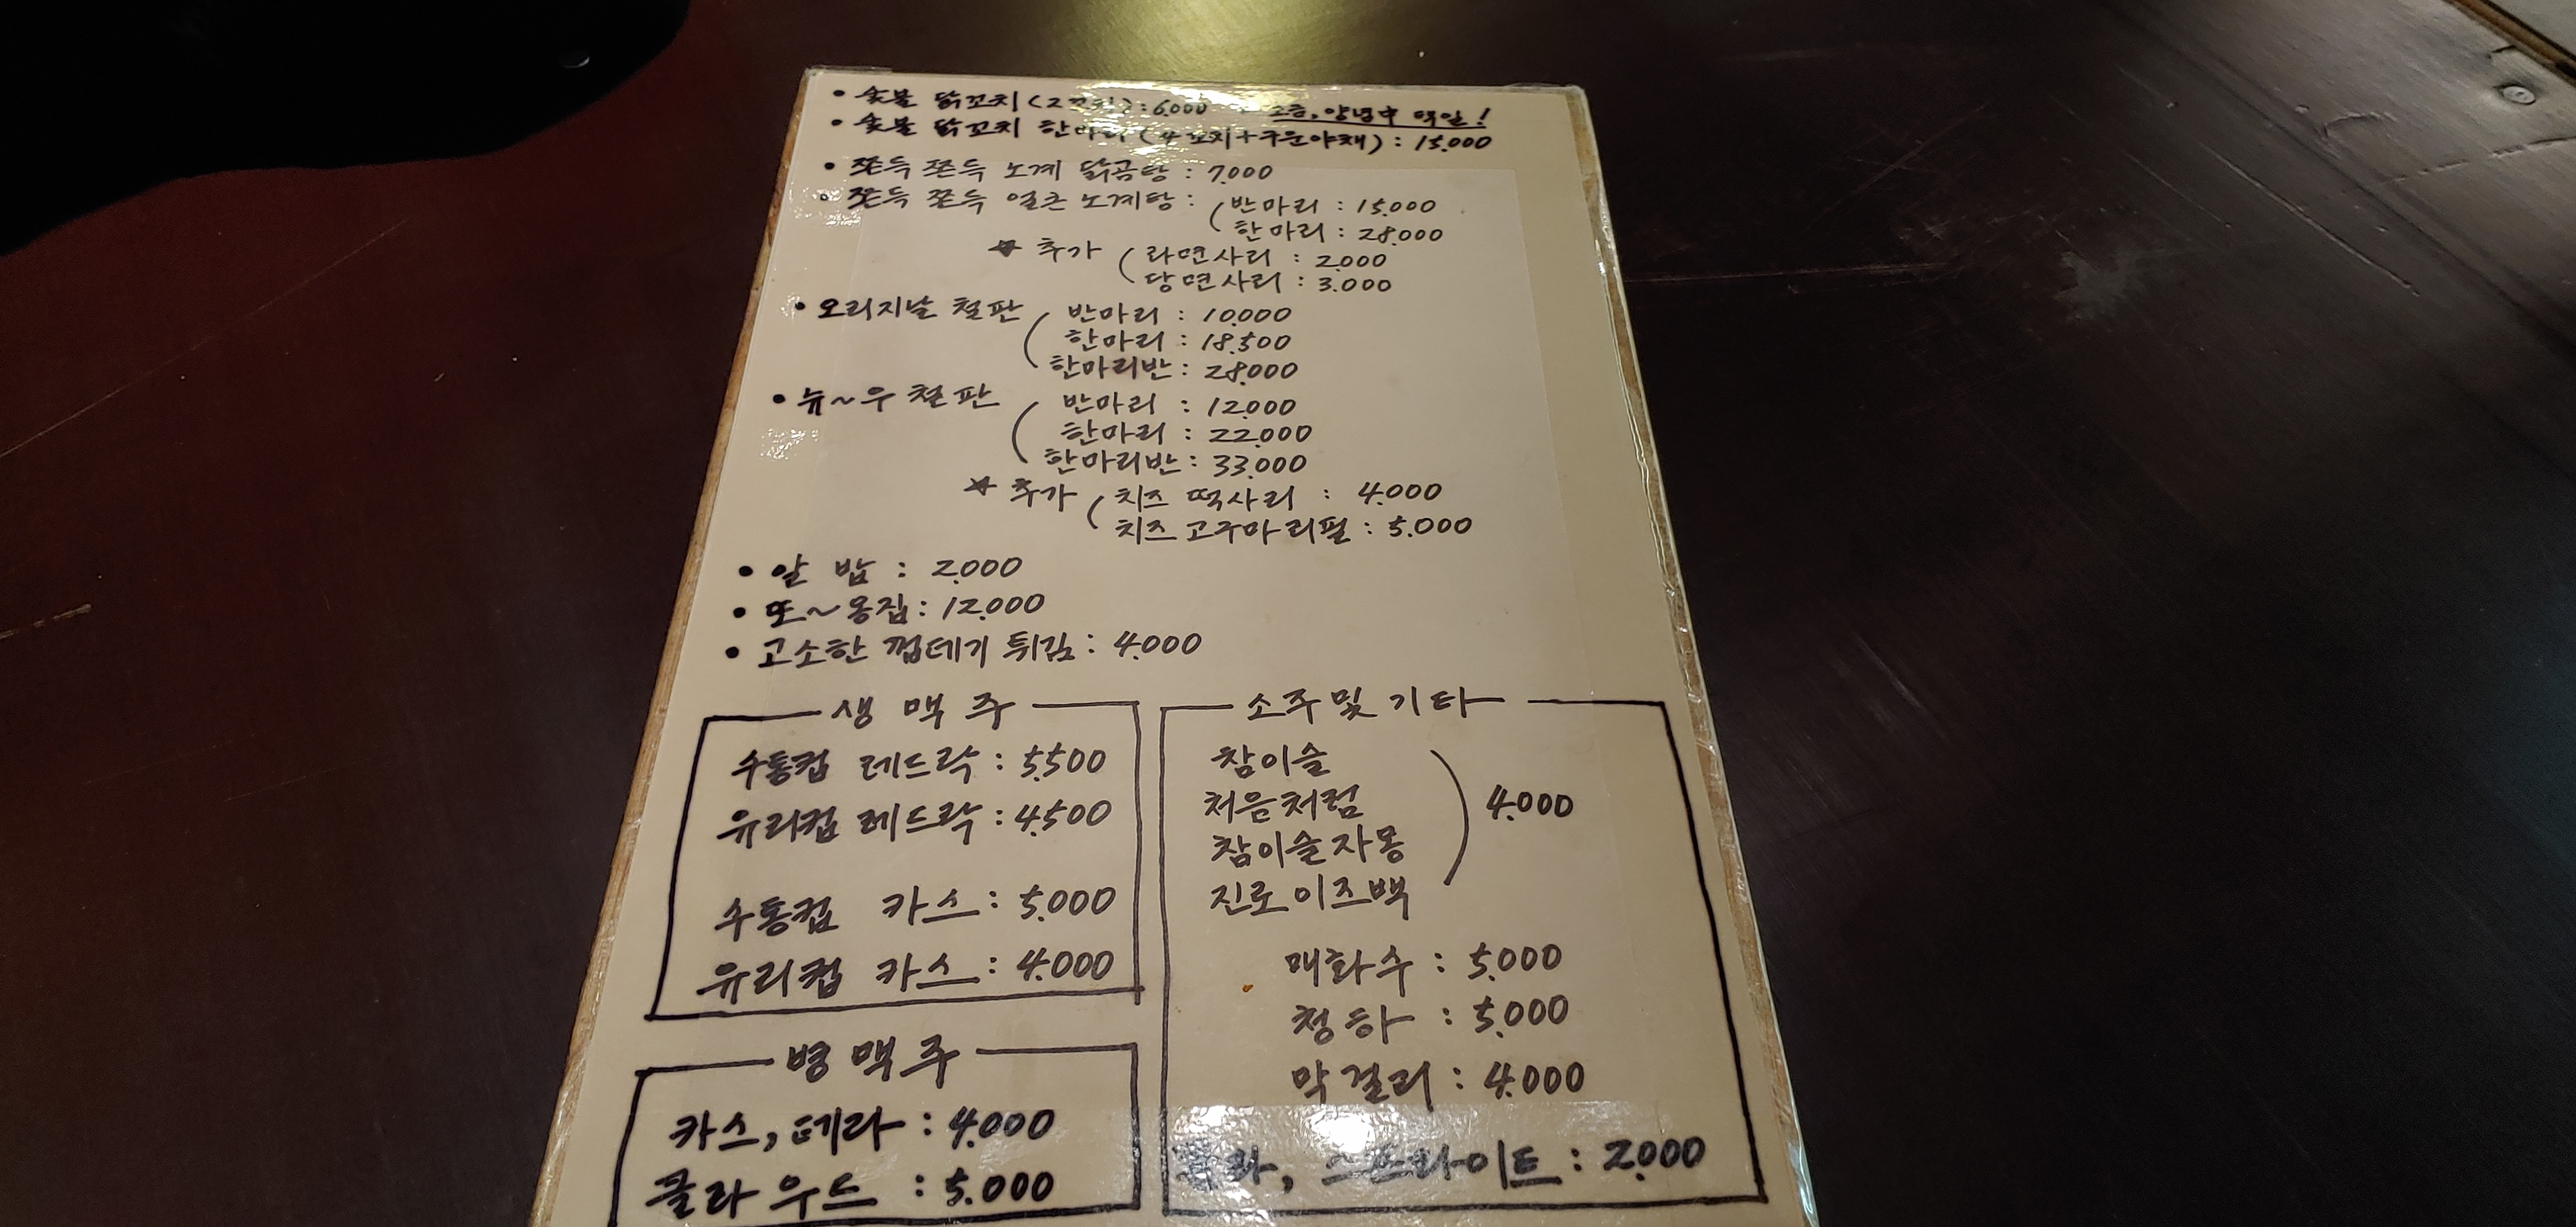 • 숯불 닭꼬치 (2꼬치) : 6.000 소금, 양념中 택일!
• 숯불 닭꼬치 한마리 (4꼬치+구운야채) : 15.000
• 쫀득 쫀득 노계 닭곰탕 : 7.000
• 쫀득 쫀득 얼큰 노계탕 : ( 반마리 : 15.000
한마리 : 28.000
★ 추가 ( 라면사리 : 2.000
당면사리 : 3.000
• 오리지날 철판 ( 반마리 : 10.000
한마리 : 18.500
한마리반 : 28.000
• 뉴~우 철판 ( 반마리 : 12.000
한마리 : 22.000
한마리반 : 33.000
★ 추가 ( 치즈 떡사리 : 4.000
치즈 고구마 리필 : 5.000
• 알 밥 : 2.000
• 또~옹집 : 12.000
• 고소한 껍데기 튀김 : 4.000
생 맥 주
수통컵 레드락 : 5.500
유리컵 레드락 : 4.500
수통컵 카스 : 5.000
유리컵 카스 : 4.000
병 맥 주
카스, 테라 : 4.000
클라우드 : 5.000
소주 및 기타
참이슬
처음처럼
참이슬자몽
진로이즈백
) 4.000
매화수 : 5.000
청하 : 5.000
막걸리 : 4.000
콜라, 스프라이트 : 2.000